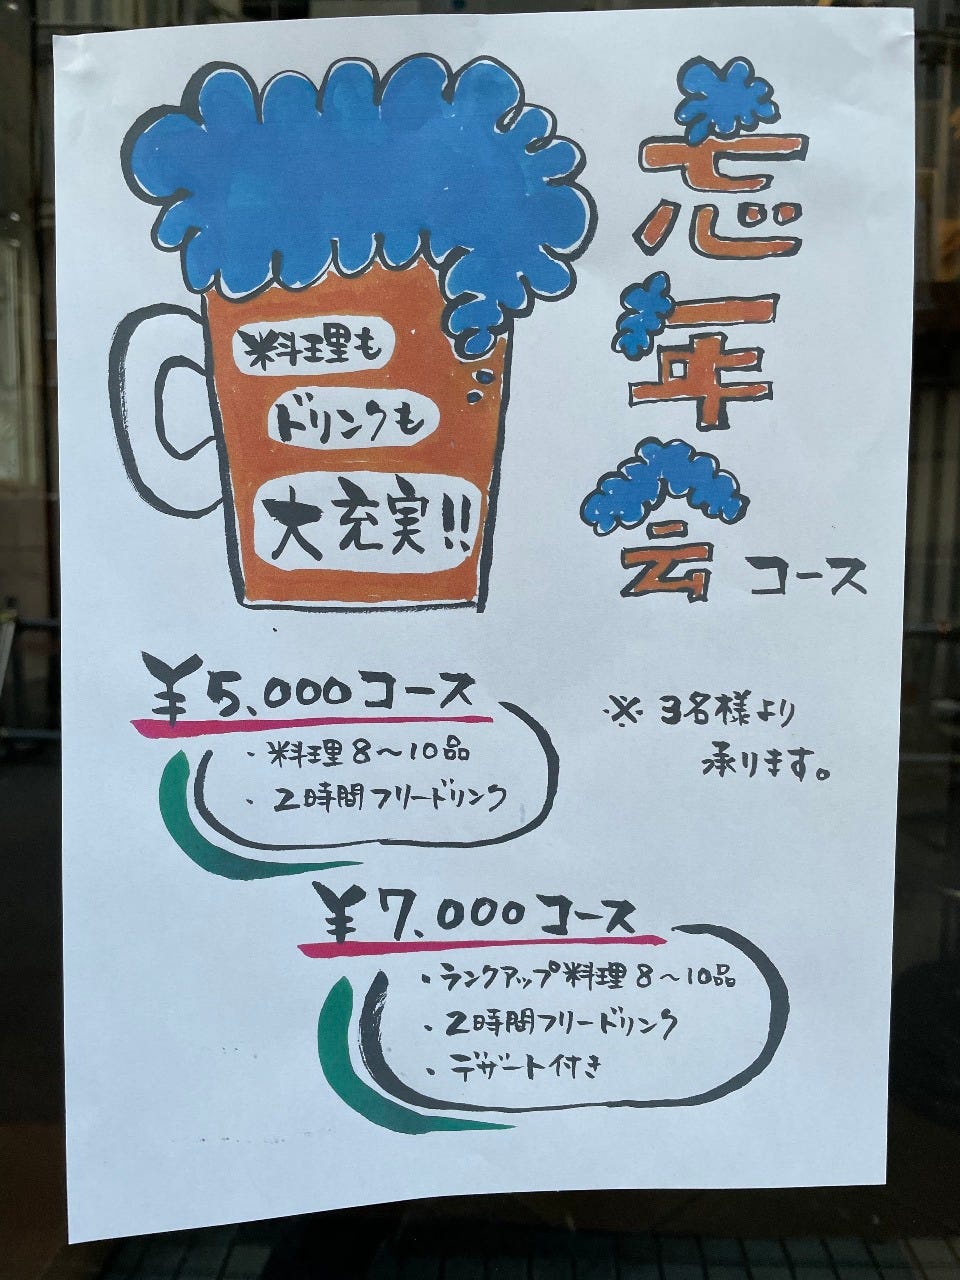 忘年会コース
料理も
ドリンクも
大充実!!
¥5,000コース
・料理8〜10品
・2時間フリードリンク
※3名様より
承ります。
¥7,000コース
・ランクアップ料理8〜10品
・2時間フリードリンク
・デザート付き